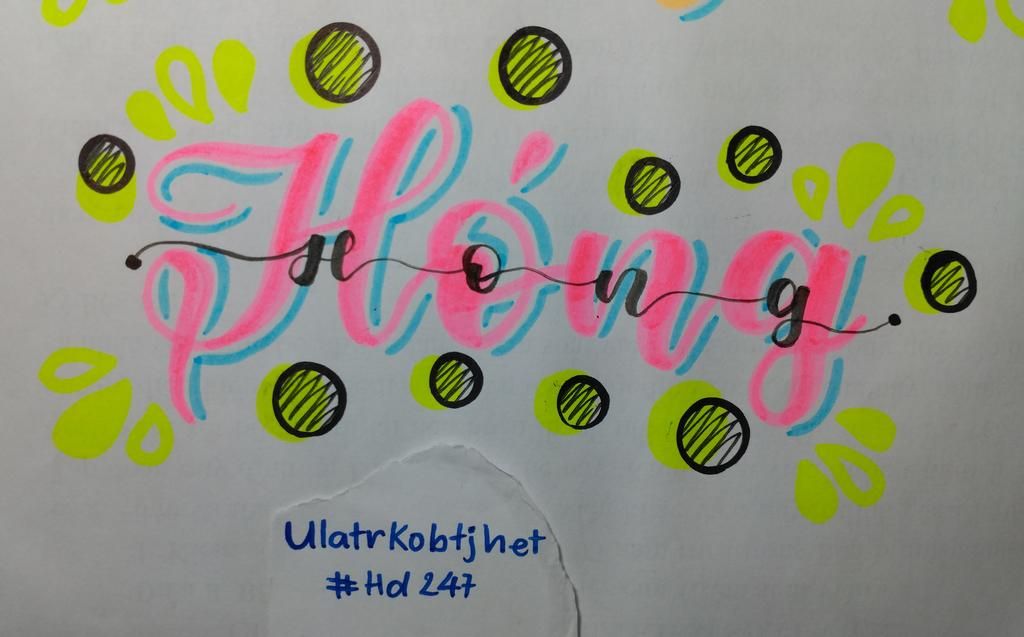 Hóng
Hong
UlatrKobtjhet
#Hd247